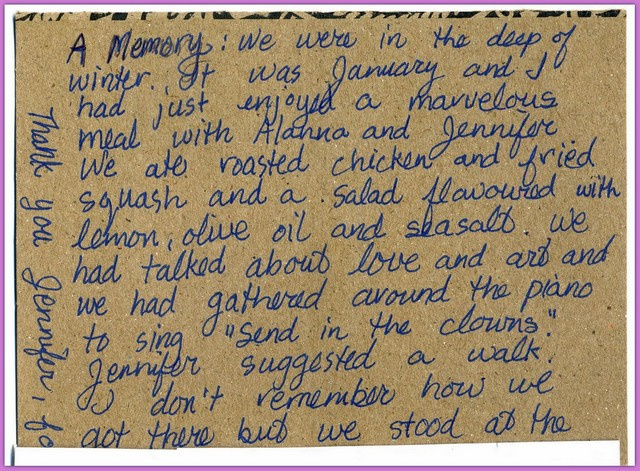 A Memory: We were in the deep of
winter. It was January and I
had just enjoyed a marvelous
meal with Alanna and Jennifer
We ate roasted chicken and fried
squash and a salad flavoured with
lemon, olive oil and seasalt. We
had talked about love and art and
we had gathered around the piano
to sing "Send in the clowns."
Jennifer suggested a walk.
I don't remember how we
got there but we stood at the
Thank you Jennifer, fo